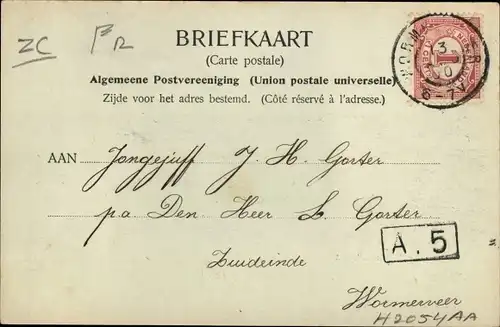 ZC
BRIEFKAART
(Carte postale)
Algemeene Postvereeniging (Union postale universelle)
Zijde voor het adres bestemd. (Côté réservé à l'adresse.)
1
6-7V
AAN Jongejuff J. H. Gorter
p.a Den Heer L. Gorter
A.5
Zuideinde
Wormerveer
H2054AA